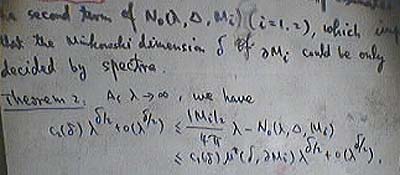 second term of N₀(λ, Δ, Mᵢ) (i=1,2), which
that the Minkowski dimension δ of ∂Mᵢ could be only
decided by spectra.
Theorem 2. As λ→∞, we have
C₁(δ) λ^{δ/2} + o(λ^{δ/2}) ≤ |Mᵢ|₂/4π λ − N₀(λ, Δ, Mᵢ)
≤ C₂(δ) μ*(δ, ∂Mᵢ) λ^{δ/2} + o(λ^{δ/2}).